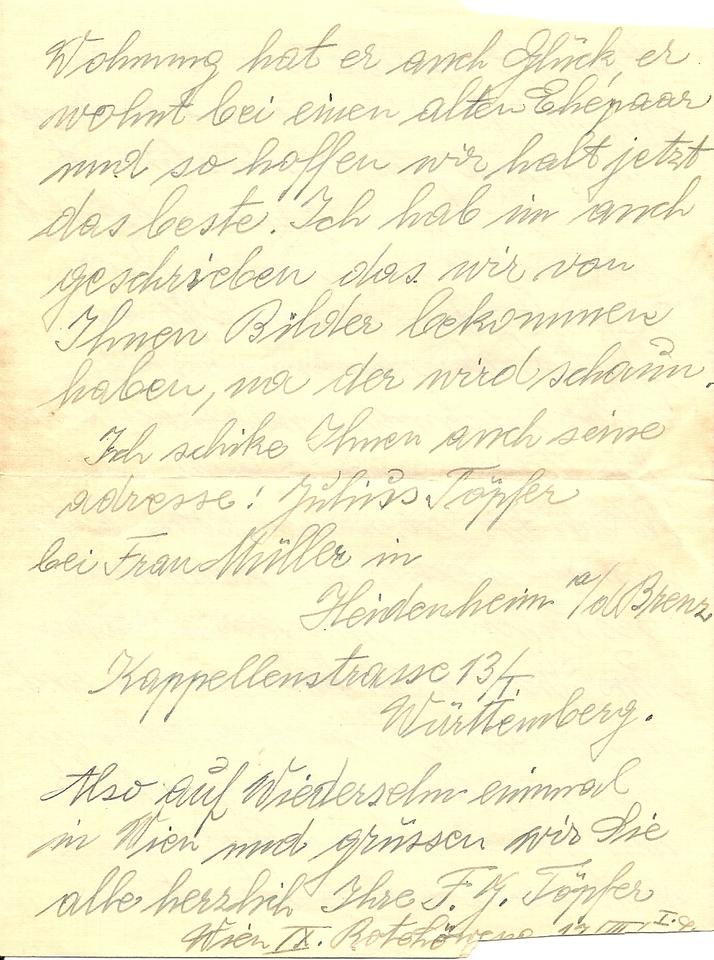 Wohnung hat er auch Glück, er
wohnt bei einen alten Ehepaar
und so hoffen wir halt jetzt
das beste. Ich hab im auch
geschrieben das wir von
Ihnen Bilder bekommen
haben, na der wird schaun.
Ich schike Ihnen auch seine
adresse! Julius Töpfer
bei Frau Müller in
Heidenheim a/d Brenz
Kappellenstrasse 13/I
Württemberg.
Also auf Wiedersehn einmal
in Wien und grüssen wir Sie
alle herzlich Ihre F. J. Töpfer
Wien IX.